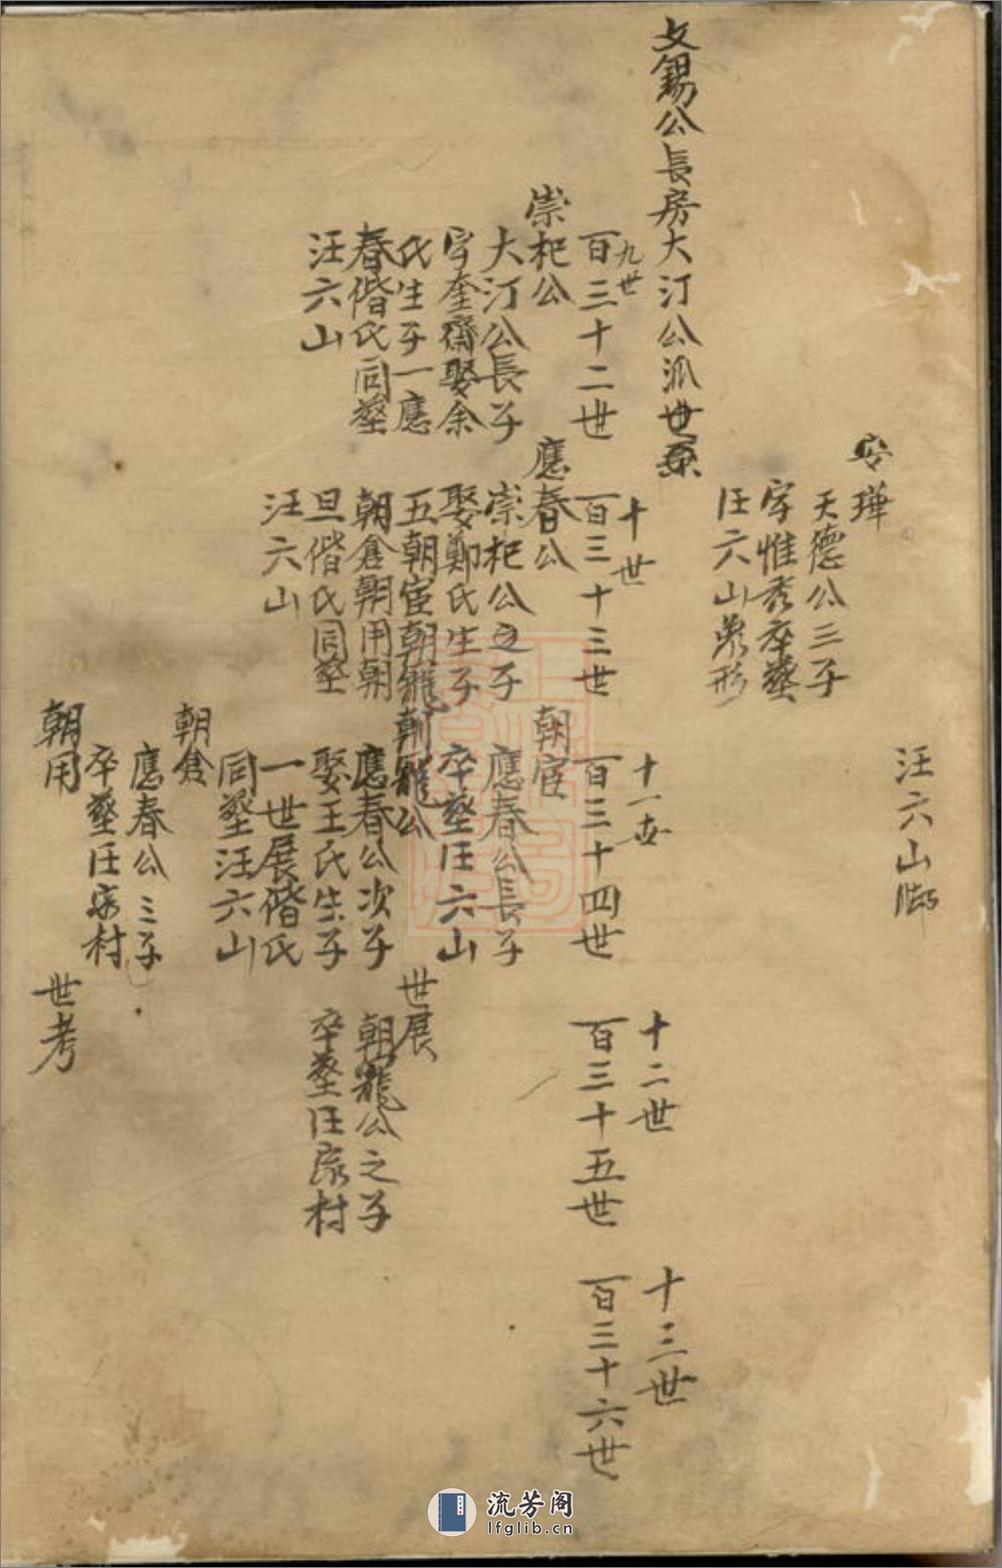 汪六山脚
安瑋
天德公三子
字惟秀卒塟
汪六山象形
文錫公長房大汀公派世系
九世
百三十二世
崇杞公
大汀公長子
字奎齋娶余
氏生子一應
春偕氏同塟
汪六山
十世
百三十三世
應春公
崇杞公之子
娶鄭氏生子
五朝宦朝寵
朝倉朝用朝
旦偕氏同塟
汪六山
十一世
百三十四世
朝宦
應春公長子
卒塟汪六山
朝寵公
應春公次子
娶王氏生子
一世展偕氏
同塟汪六山
朝倉
應春公三子
卒塟汪家村
朝用
十二世
百三十五世
世展
朝寵公之子
卒塟汪家村
世考
十三世
百三十六世
流芳阁
lfglib.cn